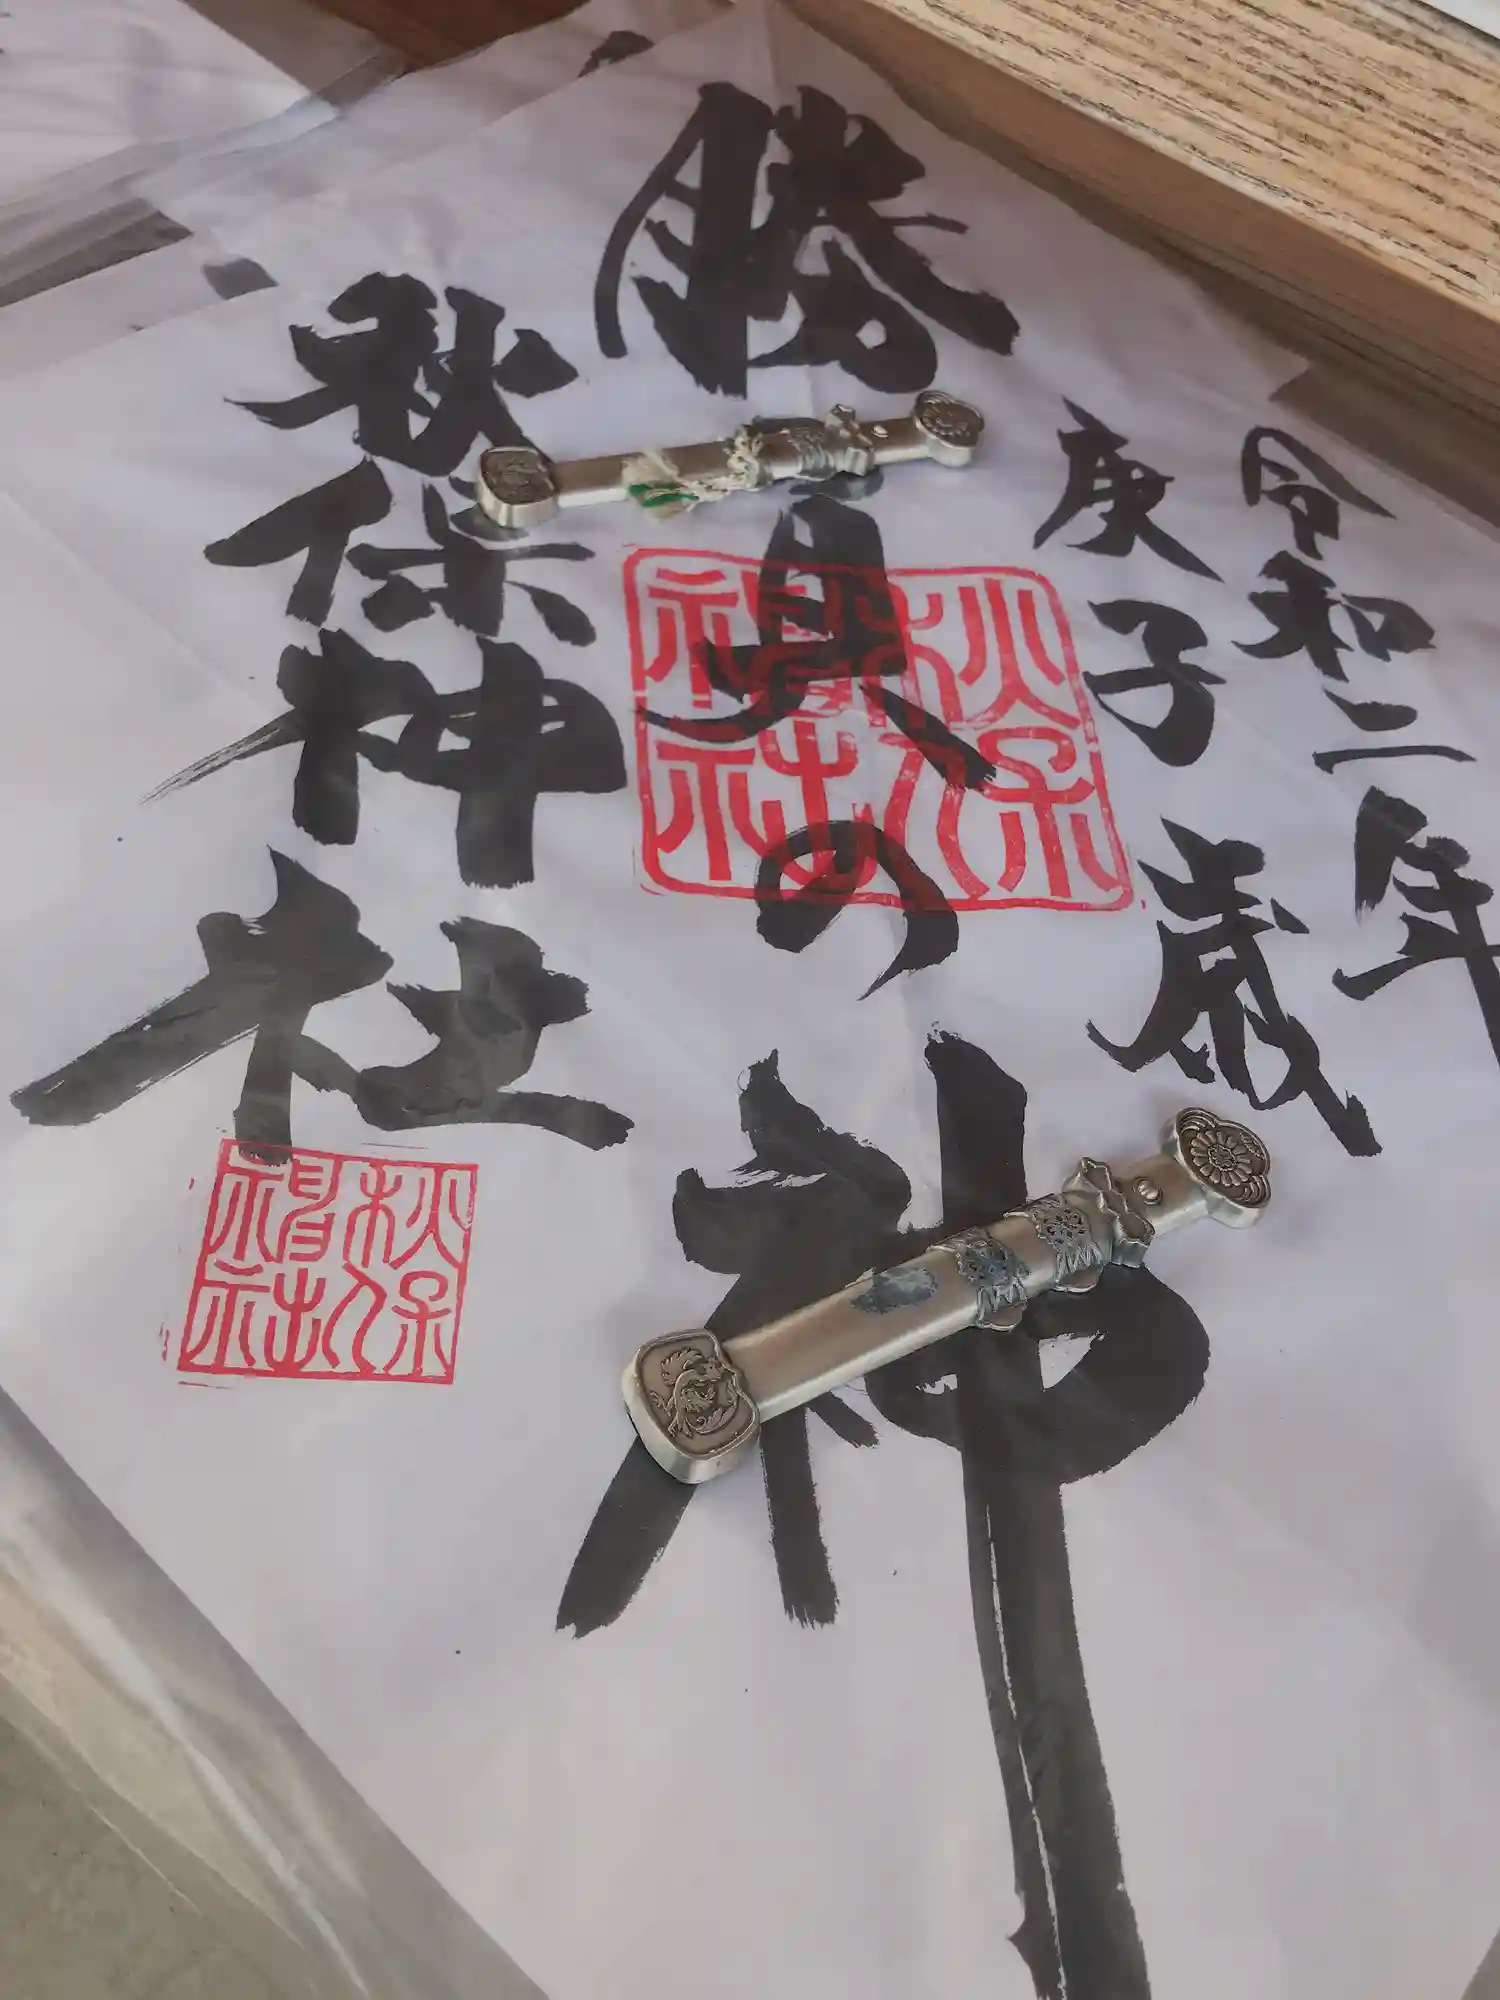 令和二年
庚子歳
勝負の神
秋保神社
秋保
神社
秋保
神社